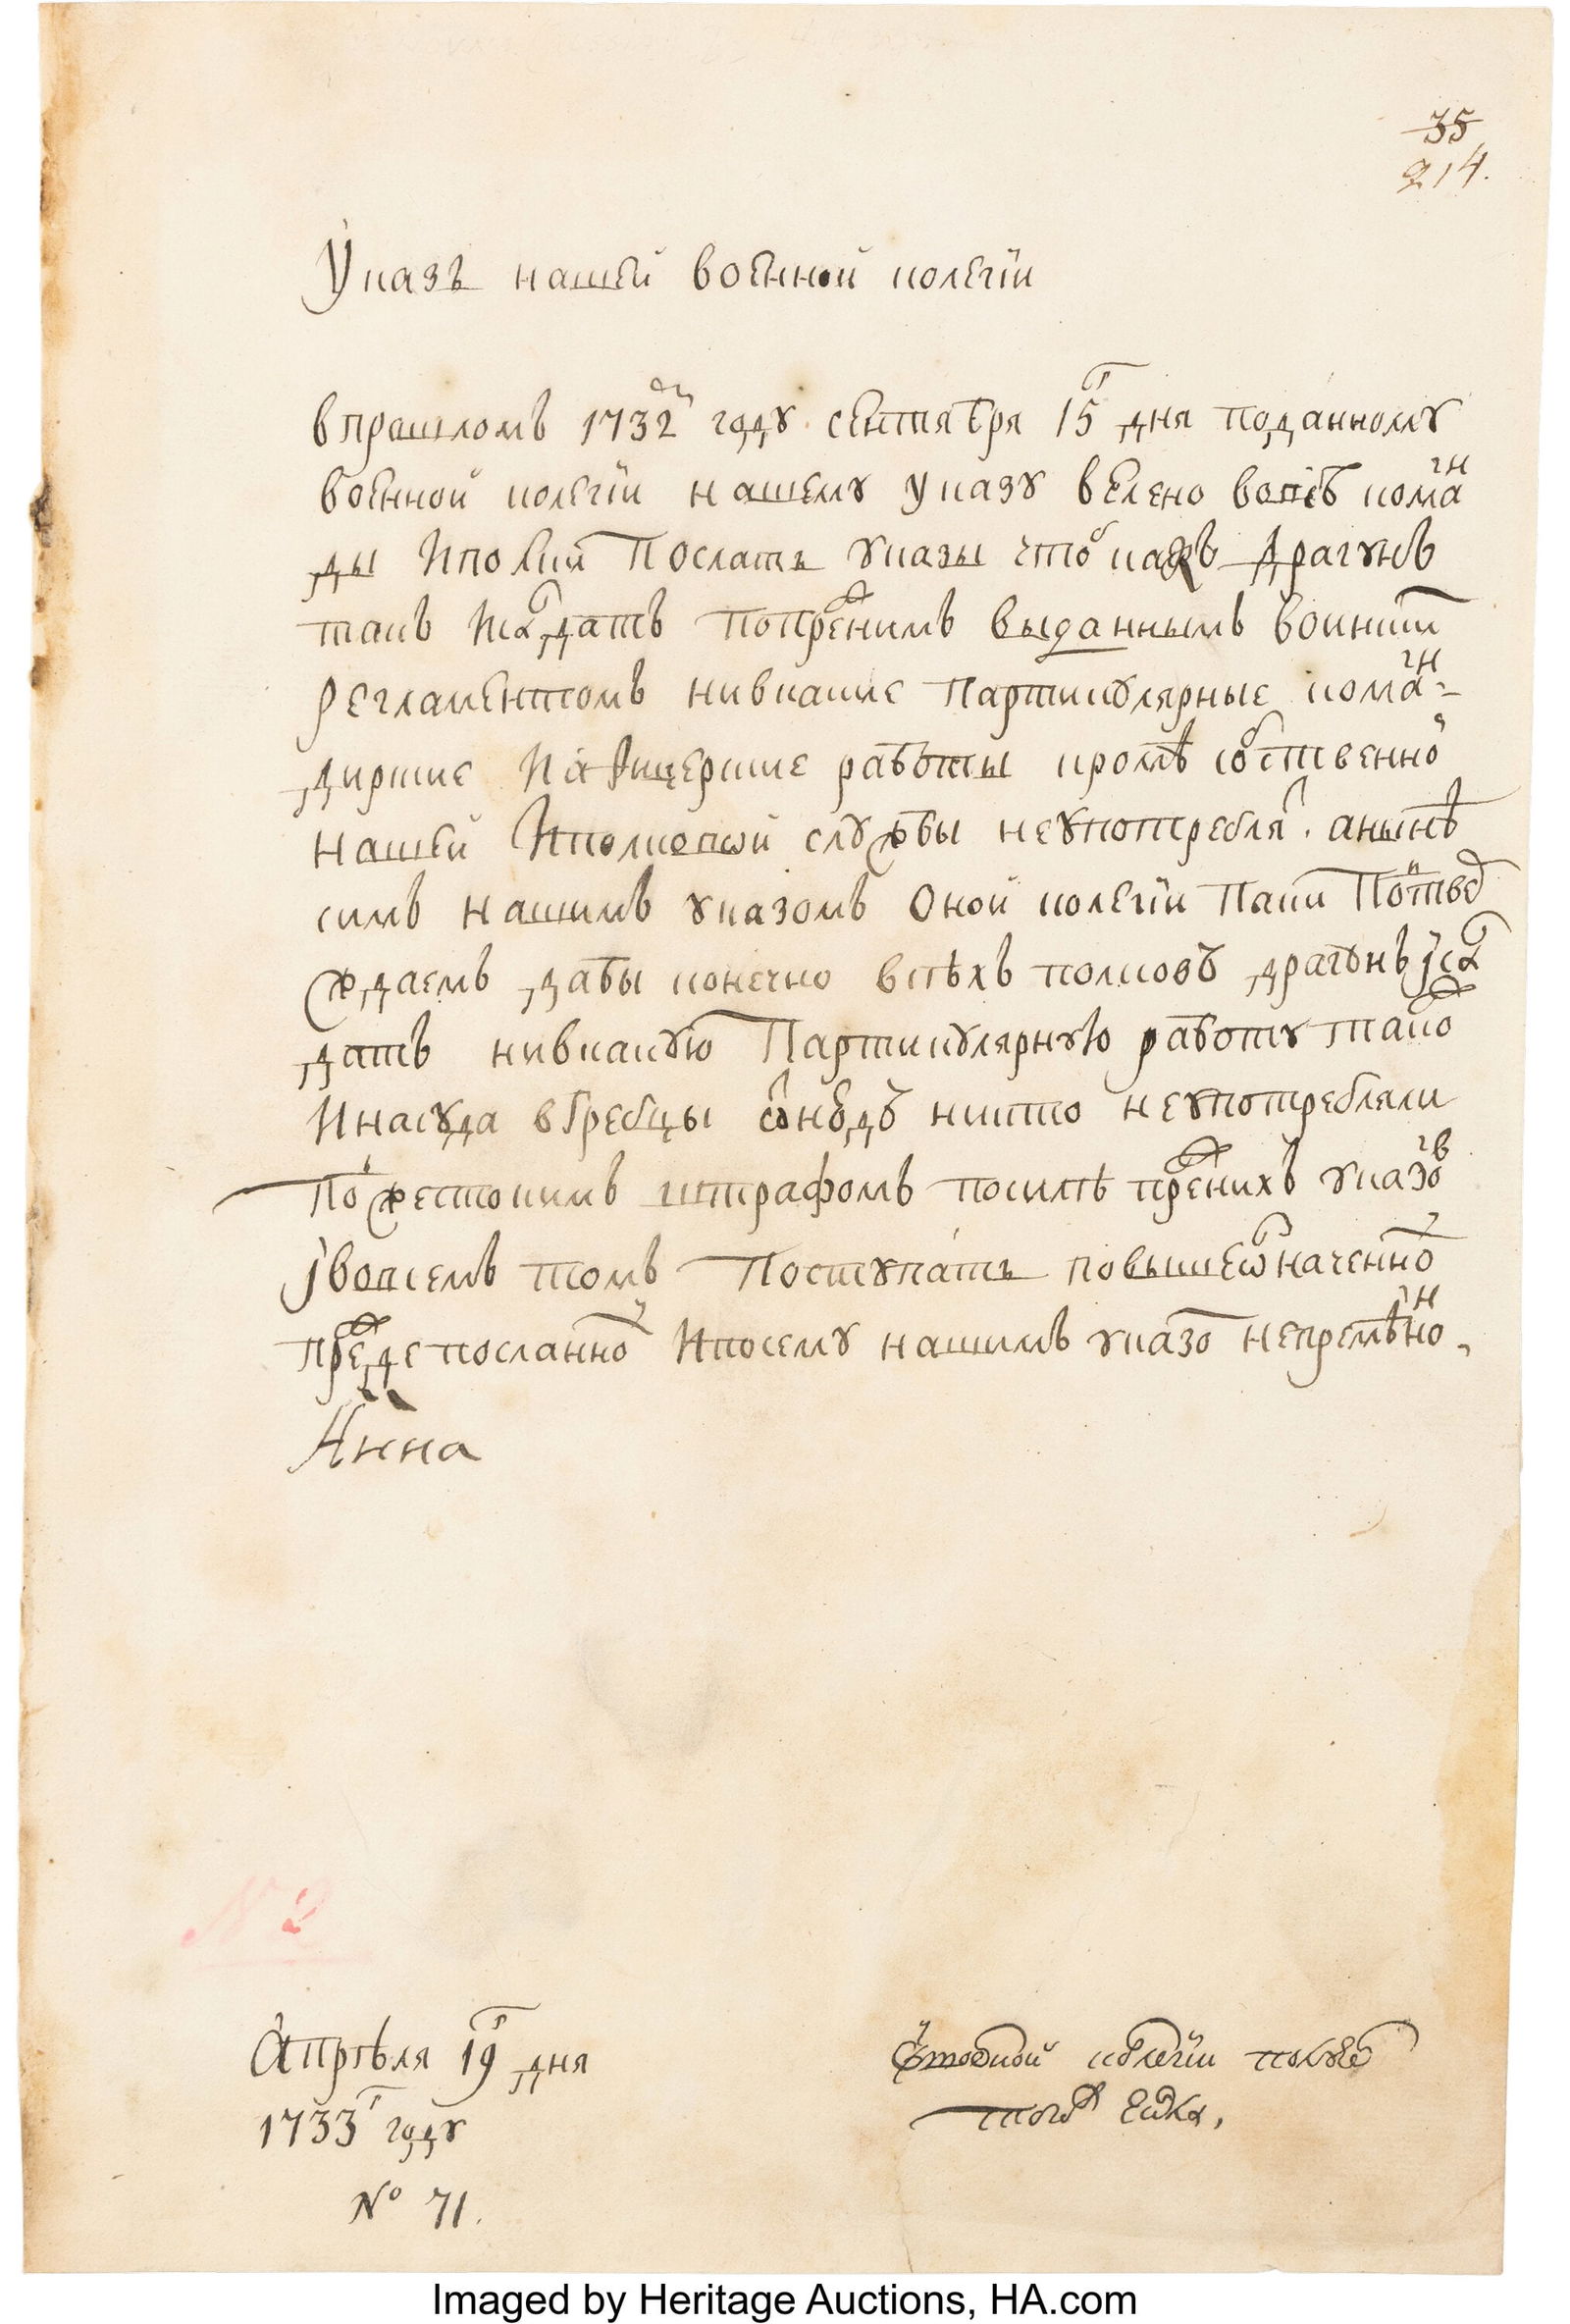 35
214.
Указъ нашей военной колегіи
в прошломъ 1732м году сентября 15г дня поданному
военной колегіи нашему указу велено во всѣ комангды
и полки послать указы чтоб какъ драгунъ
такъ и салдатъ по прежнимъ выданнымъ воинским
регламентомъ ни в какие партикулярные команг-
дирские и афицерские работы кромѣ собственной
нашей и полковой службы не употреблят. а нынѣ
симъ нашимъ указомъ оной колегіи паки подтвер
ждаемъ дабы конечно всѣхъ полковъ драгунъ і сал
датъ ни в какую партикулярную работу також
и на суда в гребцы отнюдъ никто не употребляли
под жестокимъ штрафомъ по силѣ прежнихъ указов
і во всемъ томъ поступать по вышеозначенному
прежде посланному и по сему нашимъ указом непремѣнно,
Анна
N 2
Апрѣля 19г дня
1733г году
No 71.